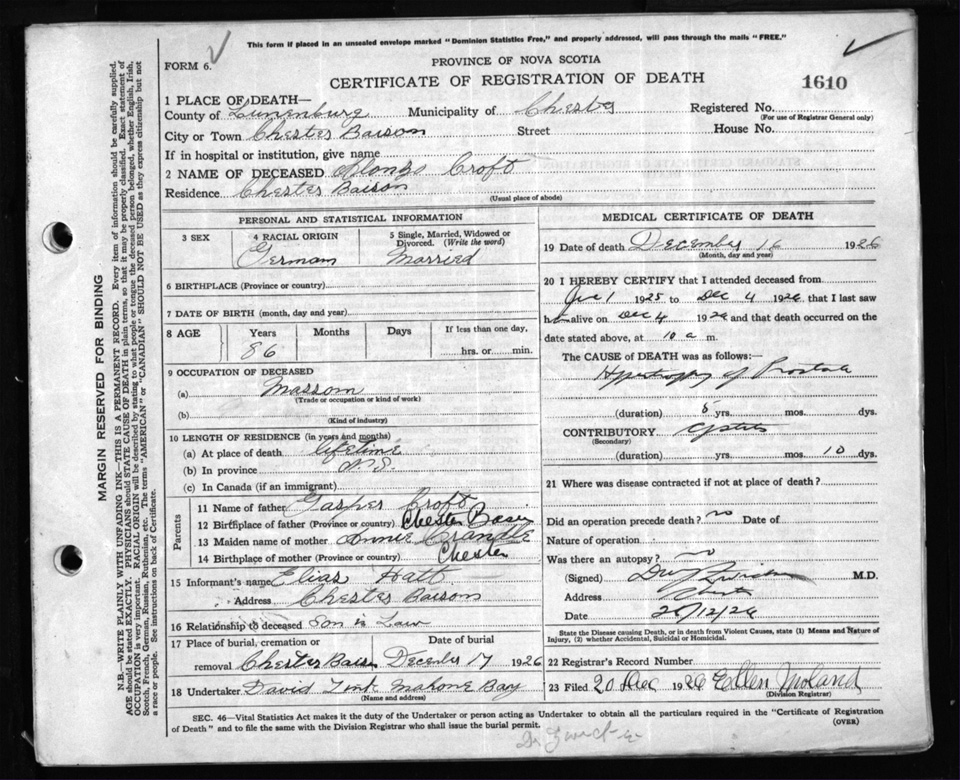 This form if placed in an unsealed envelope marked "Dominion Statistics Free," and properly addressed, will pass through the mails "FREE."
FORM 6.
PROVINCE OF NOVA SCOTIA
CERTIFICATE OF REGISTRATION OF DEATH
1610
1 PLACE OF DEATH—
County of Lunenburg Municipality of Chester Registered No.
(For use of Registrar General only)
City or Town Chester Baison Street House No.
If in hospital or institution, give name
2 NAME OF DECEASED Alonzo Croft
Residence Chester Baison
(Usual place of abode)
PERSONAL AND STATISTICAL INFORMATION
3 SEX
4 RACIAL ORIGIN
German
5 Single, Married, Widowed or Divorced. (Write the word)
Married
6 BIRTHPLACE (Province or country)
7 DATE OF BIRTH (month, day and year)
8 AGE Years Months Days If less than one day,
86 hrs. or min.
9 OCCUPATION OF DECEASED
(a) Massom
(Trade or occupation or kind of work)
(b)
(Kind of industry)
10 LENGTH OF RESIDENCE (in years and months)
(a) At place of death lifetime
(b) In province N.S.
(c) In Canada (if an immigrant)
Parents
11 Name of father Gasper Croft
12 Birthplace of father (Province or country) Chester Basin
13 Maiden name of mother Annie Crandle
14 Birthplace of mother (Province or country) Chester
15 Informant's name Elias Hatt
Address Chester Baison
16 Relationship to deceased Son in Law
17 Place of burial, cremation or removal Chester Basin
Date of burial December 17 1926
18 Undertaker David Zint Mahone Bay
(Name and address)
MEDICAL CERTIFICATE OF DEATH
19 Date of death December 16 1926
(Month, day and year)
20 I HEREBY CERTIFY that I attended deceased from
1 1925 to Dec 4 1926 that I last saw
him alive on Dec 4 1926 and that death occurred on the
date stated above, at 10 a m.
The CAUSE OF DEATH was as follows:
Hypertrophy of Prostate
(duration) 5 yrs. mos. dys.
CONTRIBUTORY Cystitis
(Secondary)
(duration) yrs. mos. 10 dys.
21 Where was disease contracted if not at place of death?
Did an operation precede death? no Date of
Nature of operation
Was there an autopsy? no
(Signed) M.D.
Address Chester
Date 20/12/26
State the Disease causing Death, or in death from Violent Causes, state (1) Means and Nature of Injury, (2) whether Accidental, Suicidal or Homicidal.
22 Registrar's Record Number
23 Filed 20 Dec 1926
(Division Registrar)
SEC. 46—Vital Statistics Act makes it the duty of the Undertaker or person acting as Undertaker to obtain all the particulars required in the "Certificate of Registration
of Death" and to file the same with the Division Registrar who shall issue the burial permit.
(OVER)
MARGIN RESERVED FOR BINDING
N.B.—WRITE PLAINLY WITH UNFADING INK—THIS IS A PERMANENT RECORD. Every item of information should be carefully supplied.
AGE should be stated EXACTLY. PHYSICIANS should STATE CAUSE OF DEATH in plain terms, so that it may be properly classified. Exact statement of
OCCUPATION is very important. RACIAL ORIGIN will be described by stating to what people or tongue the deceased person belonged, whether English, Irish,
Scotch, French, German, Russian, Ruthenian, etc. The terms "AMERICAN" or "CANADIAN" SHOULD NOT BE USED as they express citizenship but not
a race or people. See instructions on back of Certificate.